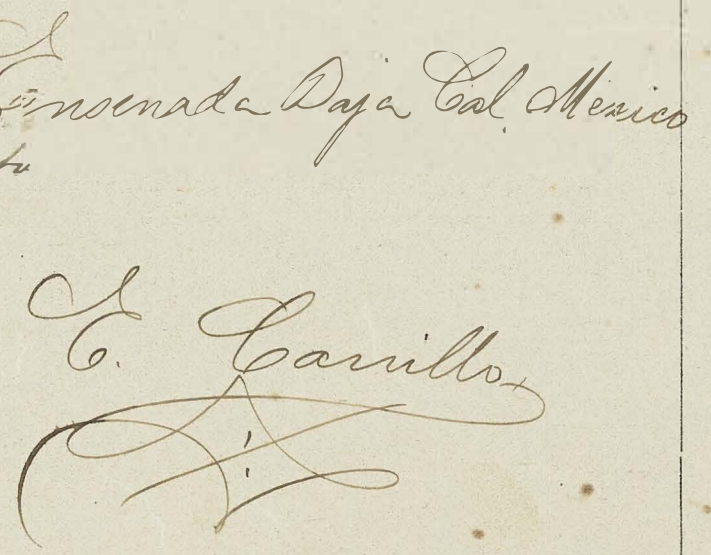 Ensenada Baja Cal. Mexico
E. Carrillo